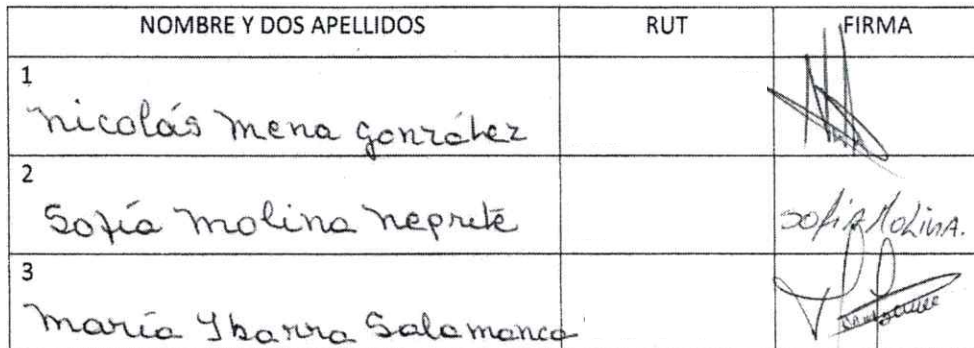 NOMBRE Y DOS APELLIDOS RUT FIRMA
1
Nicolás Mena González
2
Sofía Molina Neprete SOFIA MOLINA.
3
María Ybarra Salamanca